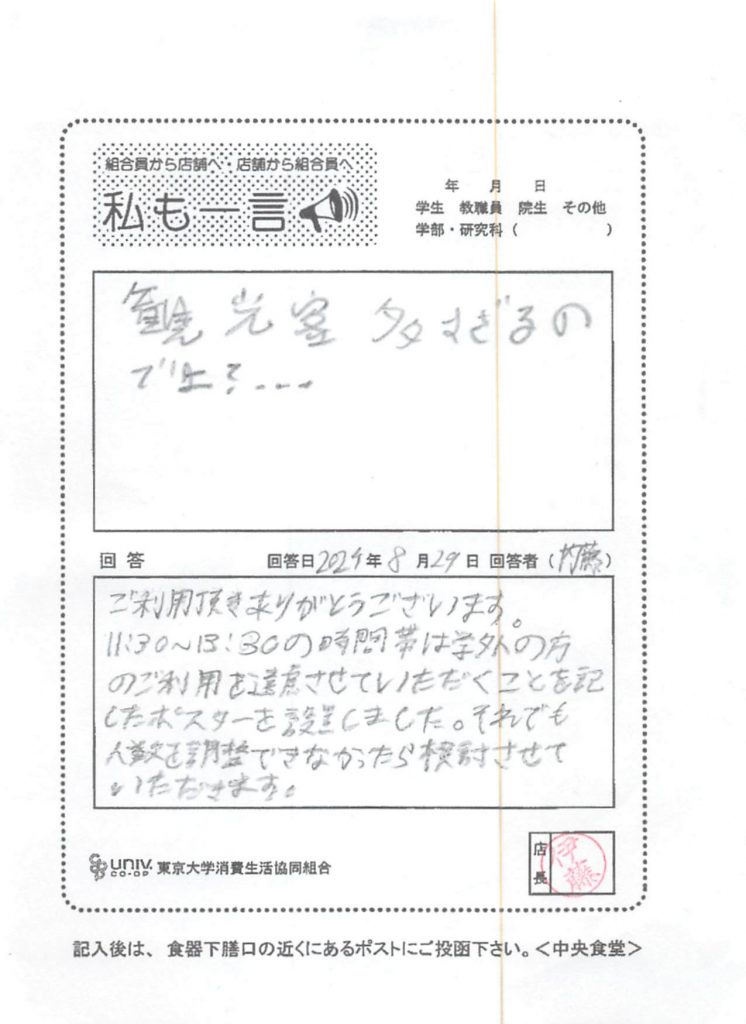 組合員から店舗へ・店舗から組合員へ
私も一言
年 月 日
学生 教職員 院生 その他
学部・研究科（ ）
観光客 多すぎるの
では？...
回答 回答日2024年8月29日 回答者（内藤）
ご利用頂きありがとうございます。
11:30～13:30の時間帯は学外の方
のご利用を遠慮させていただくことを記
したポスターを設置しました。それでも
人数を調整できなかったら検討させて
いただきます。
UNIV. CO-OP 東京大学消費生活協同組合
店長 伊藤
記入後は、食器下膳口の近くにあるポストにご投函下さい。＜中央食堂＞